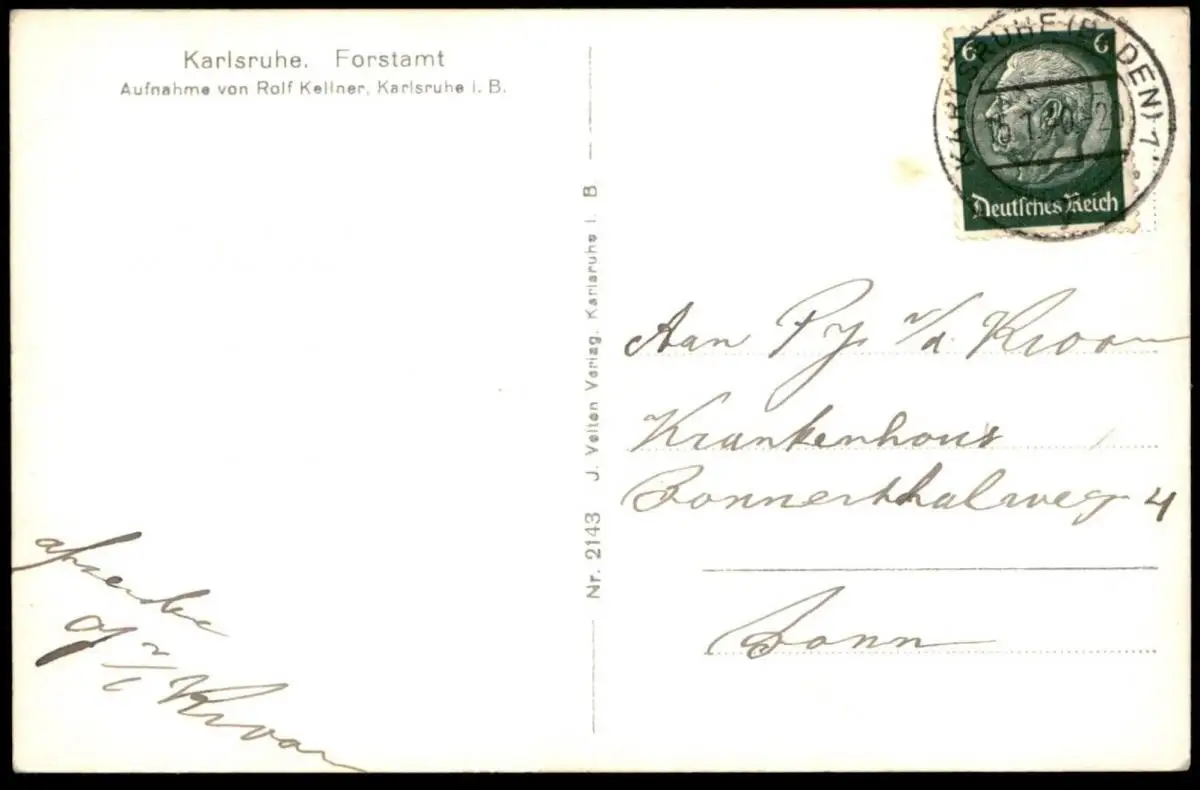 Karlsruhe. Forstamt
Aufnahme von Rolf Kellner, Karlsruhe i. B.
Nr. 2143 J. Velten Verlag. Karlsruhe i. B
6 6
Deutsches Reich
KARLSRUHE (BADEN) 1
Aan P.J. v/d. Kroon
Krankenhous
Bonnerthalweg 4
Bonn
v/d Kroon